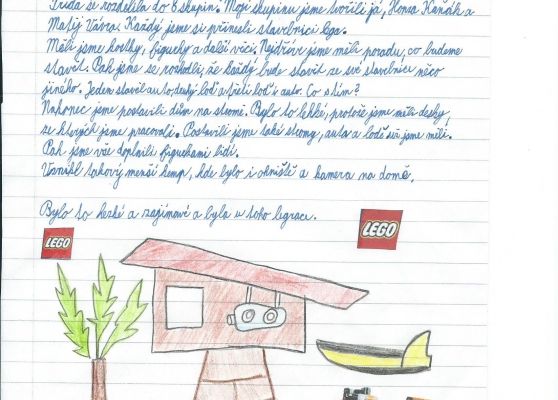 Třída se rozdělila do 6 skupin. Moji skupinu jsme tvořili já, Honza Kaňák a
Matěj Vávra. Každý jsme si přinesli stavebnici lega.
Měli jsme kostky, figurky a další věci. Nejdříve jsme měli poradu, co budeme
stavět. Pak jsme se rozhodli, že každý bude stavět ze své stavebnice něco
jiného. Jeden stavěl auto, druhý loď a třetí loď i auto. Co s tím?
Nakonec jsme postavili dům na stromě. Bylo to lehké, protože jsme měli desky,
ze kterých jsme pracovali. Postavili jsme také stromy, auta a lodě už jsme měli.
Pak jsme vše doplnili figurkami lidí.
Vznikl takový menší kemp, kde bylo i ohniště a kamera na domě.
Bylo to hezké a zajímavé a byla u toho legrace.
LEGO
LEGO